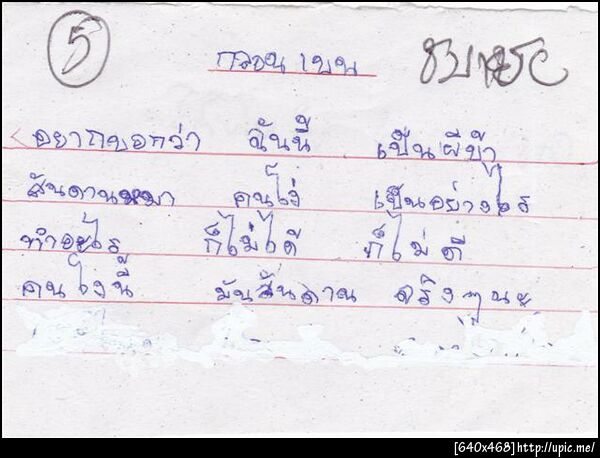 5
กลอน เบน
อยากบอกว่า ฉันนี้ เป็นผีบ้า
สันดานหมา คนโง่ เป็นอย่างไร
ทำอะไร ก็ไม่ได้ ก็ไม่ดี
คนโง่นี้ มันสันดาน จริงๆนะ
[640x468]http://upic.me/